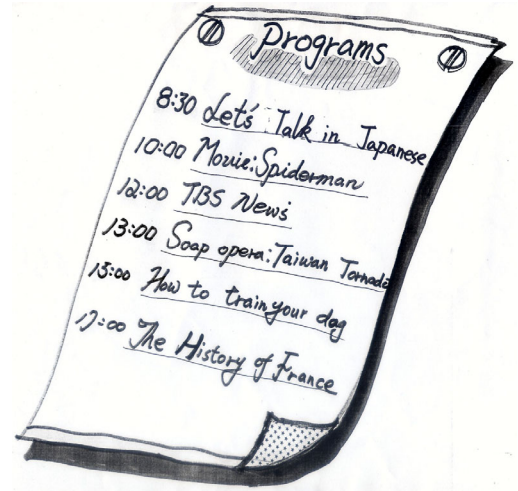 Programs
8:30 Let's Talk in Japanese
10:00 Movie: Spiderman
12:00 TBS News
13:00 Soap opera: Taiwan Tornado
15:00 How to train your dog
17:00 The History of France